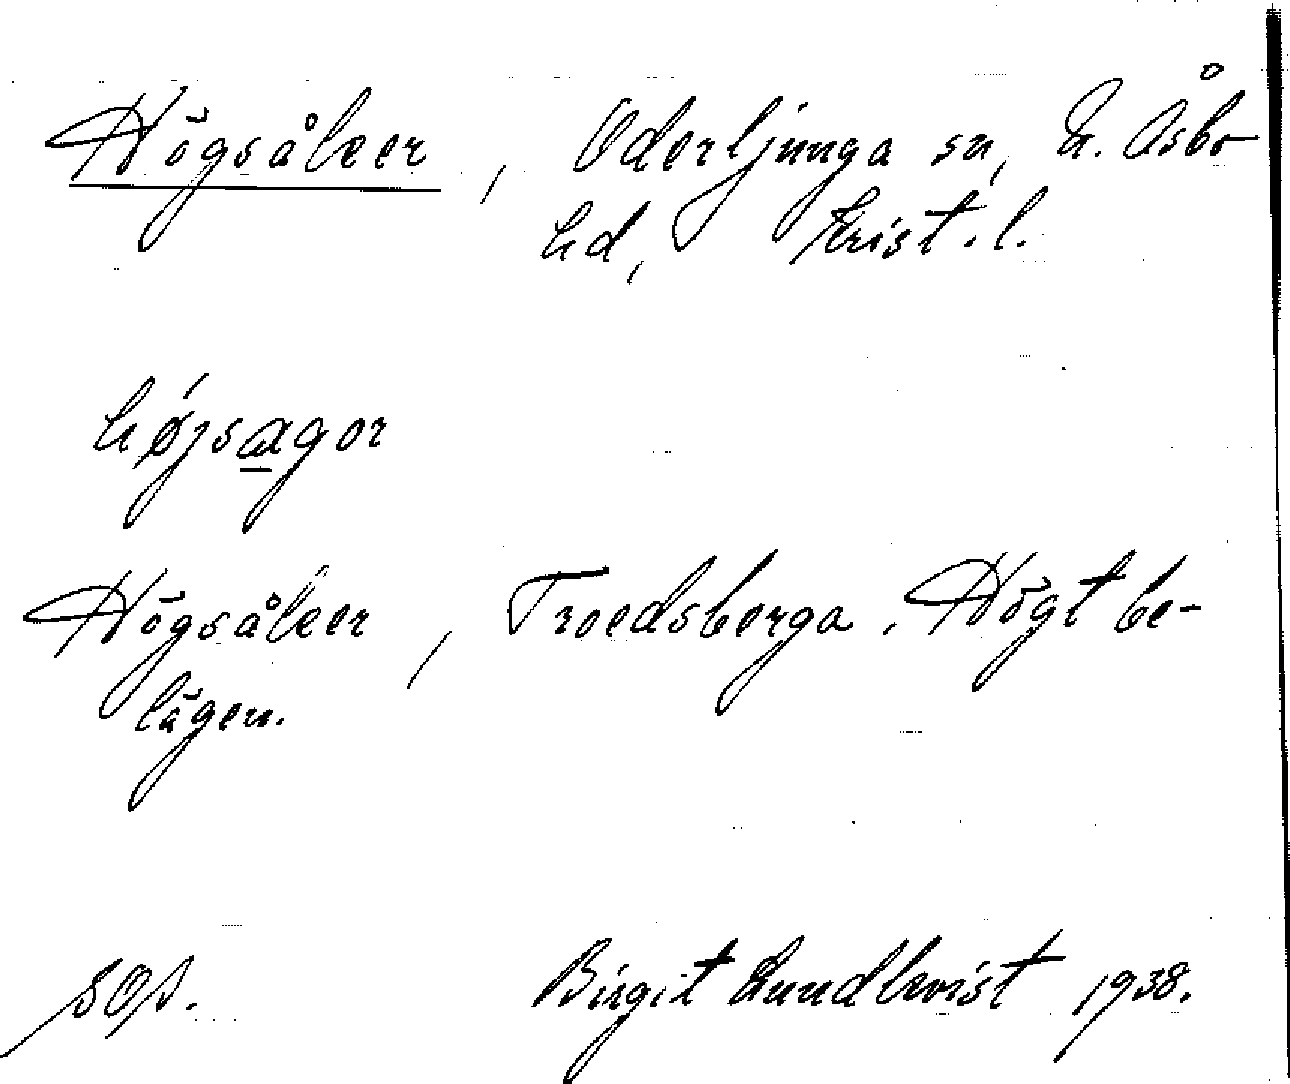 Högsåker, Oderljunga sn, N. Åsbo
hd, Krist. l.
højsagor
Högsåker, Troedsberga. Högt be-
lägen.
Birgit Lundkvist 1938.